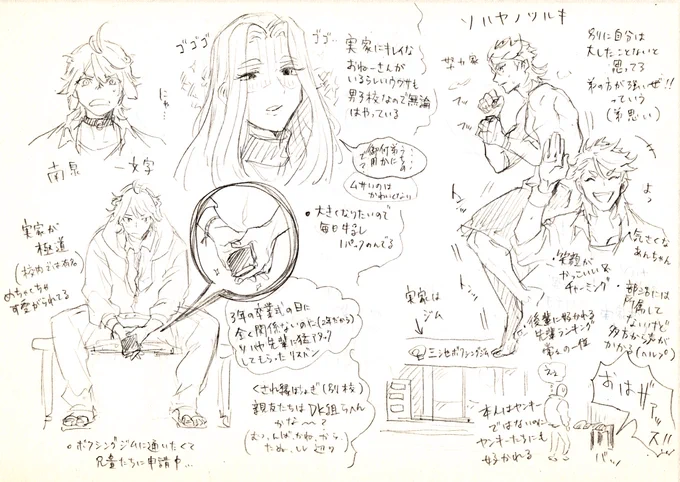 ソハヤノツルキ
別に自分は
大したことないと
思ってる
弟の方が強いぜ!!
っていう
(弟思い)
ゴゴゴ
ゴゴ…
実家にキレイな
おねーさんが
いるらしいウワサも
男子校なので無論
はやっている
にゃ…
南泉
一文字
フッ
フッ
よっ
大きくなりたいので
毎日牛乳
1パックのんでる
実家が
極道
(校内では有名)
めちゃくちゃ
可愛がられてる
気さくな
あんちゃん
笑顔が
かっこいい&
チャーミング
部活には
所属して
ないけど
多方から声が
かかる(ヘルプ)
後輩に好かれる
先輩ランキング
常に一位
実家は
ジム
三池ボクシングジム
3年の卒業式の日に
全く関係ないのに(2年だから)
ソハヤ先輩に猛アタック
してもらったリスバン
くされ縁はちょぎ(別校)
親友たちはDK組らへん
かな〜?
ボクシングジムに通いたくて
兄貴たちに申請中…
本人はヤンキー
ではないのに
ヤンキーたちにも
好かれる
おはざァッ
スッ!!
バッ